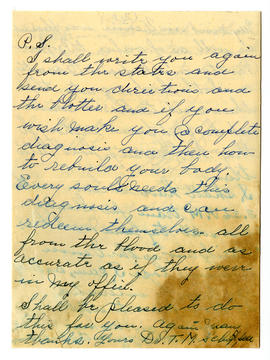 P.S.
I shall write you again
from the states and
send you directions and
the blotter and if you
wish make you a complete
diagnosis and then how
to rebuild your body.
Every soul needs this
diagnosis and can
redeem themselves. all
from the blood and as
accurate as if they were
in my office.
Shall be pleased to do
this for you. again many
thanks. Yours Dr. T. M.